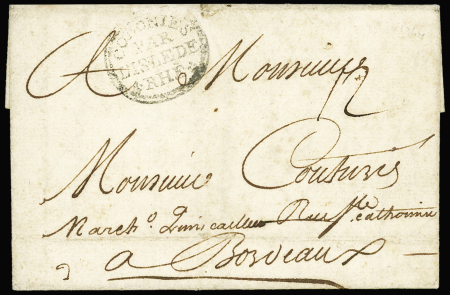 COLONIES
PAR
L'ISLE DE
RHÉ
A Monsieur
Monsieur Coutures
March.d Quincailler Rue Ste. catherine
a Bordeaux